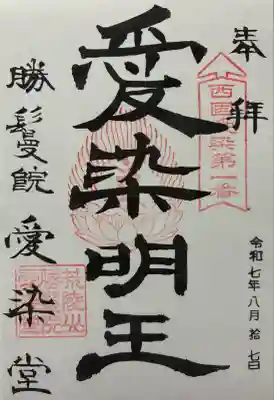 奉拝
西国愛染第一番
愛染明王
令和七年八月拾七日
勝鬘院 愛染堂